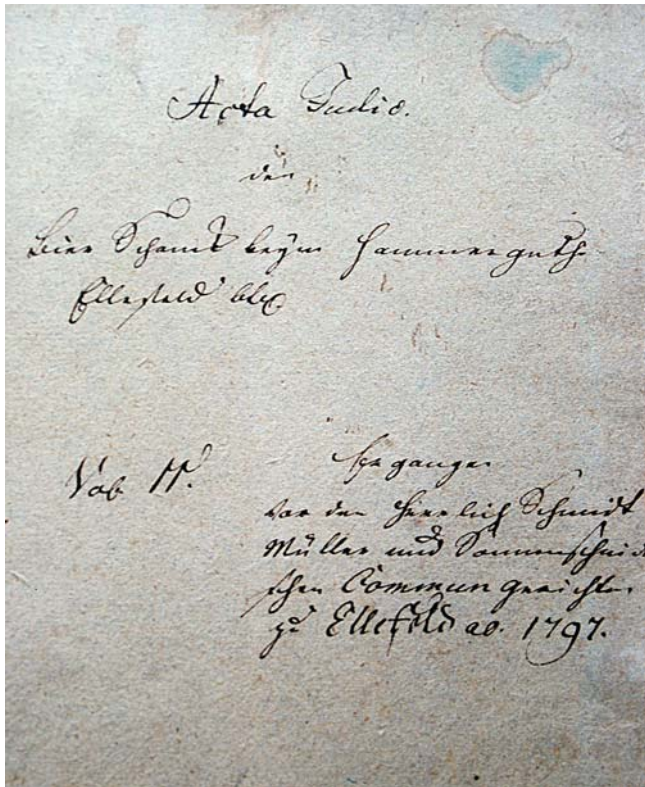 Acta Judic.
den
Bier Schank beym Hammerguthe
Ellefeld btr.
Vol. II.
Ergangen
vor den Herrlich Schmidt
Müller und Sonnenschein
schen Commun gerichten
zu Ellefeld ao. 1797.